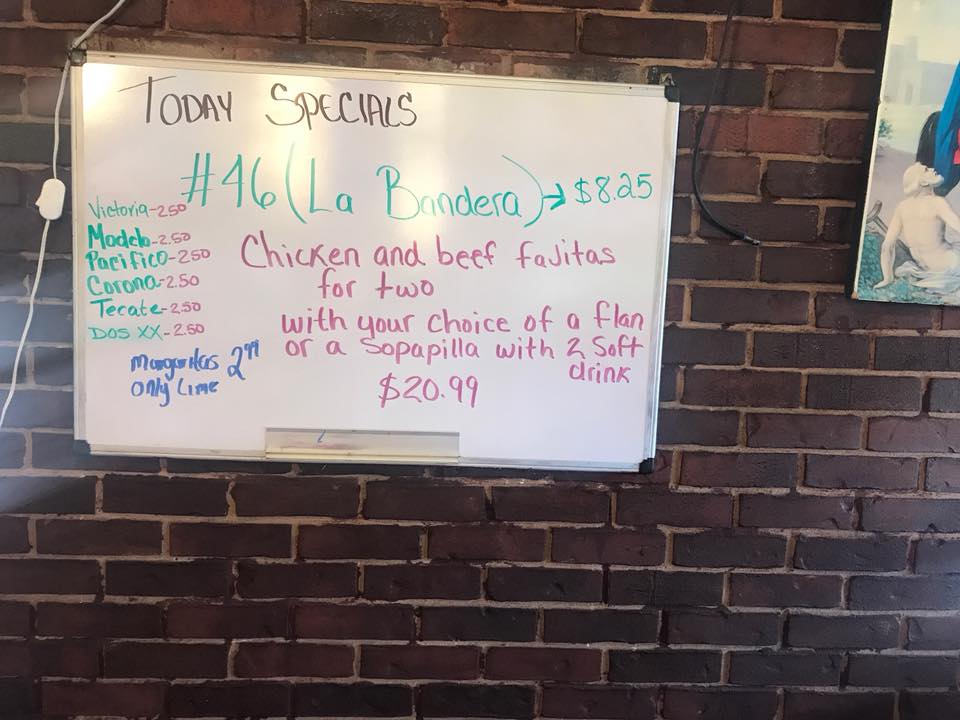 TODAY SPECIALS
#46 (La Bandera) → $8.25
Victoria-2.50
Modelo-2.50
Pacifico-2.50
Corona-2.50
Tecate-2.50
Dos XX-2.50
margaritas 2.99
only Lime
Chicken and beef fajitas
for two
with your choice of a flan
or a Sopapilla with 2 Soft
drink
$20.99